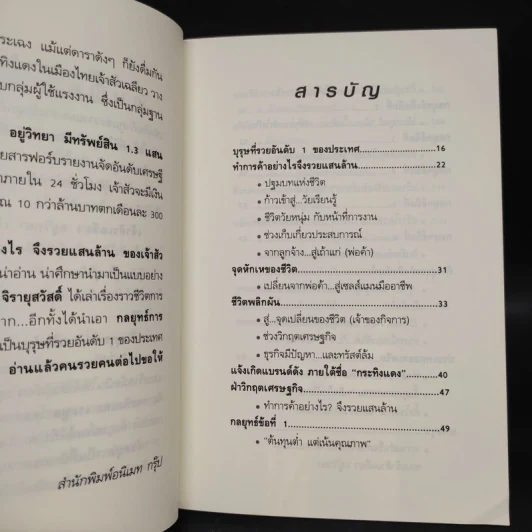 ระเฉง แม้แต่ดาราดังๆ ก็ยังดื่มกัน
ทิงแดงในเมืองไทยเจ้าสัวเฉลียว วาง
บกลุ่มผู้ใช้แรงงาน ซึ่งเป็นกลุ่มฐาน
อยู่วิทยา มีทรัพย์สิน 1.3 แสน
ยสารฟอร์บรายงานจัดอันดับเศรษฐี
าภายใน 24 ชั่วโมง เจ้าสัวจะมีเงิน
ณ 10 กว่าล้านบาทตกเดือนละ 300
งไร จึงรวยแสนล้าน ของเจ้าสัว
น่าอ่าน น่าศึกษานำมาเป็นแบบอย่าง
จิรายุสวัสดิ์ ได้เล่าเรื่องราวชีวิตการ
าก...อีกทั้งได้นำเอา กลยุทธ์การ
เป็นบุรุษที่รวยอันดับ 1 ของประเทศ
อ่านแล้วคนรวยคนต่อไปขอให้
สำนักพิมพ์อนิเมท กรุ๊ป
สารบัญ
บุรุษที่รวยอันดับ 1 ของประเทศ...................16
ทำการค้าอย่างไรจึงรวยแสนล้าน...................22
• ปฐมบทแห่งชีวิต
• ก้าวเข้าสู่...วัยเรียนรู้
• ชีวิตวัยหนุ่ม กับหน้าที่การงาน
• ช่วงเก็บเกี่ยวประสบการณ์
• จากลูกจ้าง...สู่เถ้าแก่ (พ่อค้า)
จุดหักเหของชีวิต...................31
• เปลี่ยนจากพ่อค้า...สู่เซลส์แมนมืออาชีพ
ชีวิตพลิกผัน...................33
• สู่...จุดเปลี่ยนของชีวิต (เจ้าของกิจการ)
• ช่วงวิกฤตเศรษฐกิจ
• ธุรกิจมีปัญหา...และทรัสต์ล้ม
แจ้งเกิดแบรนด์ดัง ภายใต้ชื่อ "กระทิงแดง"......40
ฝ่าวิกฤตเศรษฐกิจ...................47
• ทำการค้าอย่างไร? จึงรวยแสนล้าน
กลยุทธ์ข้อที่ 1...................49
• "ต้นทุนต่ำ แต่เน้นคุณภาพ"